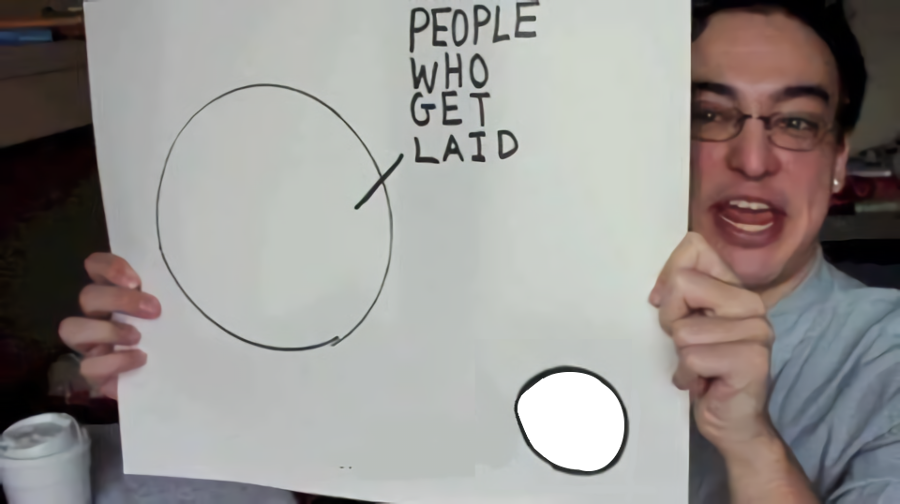 PEOPLE
WHO
GET
LAID